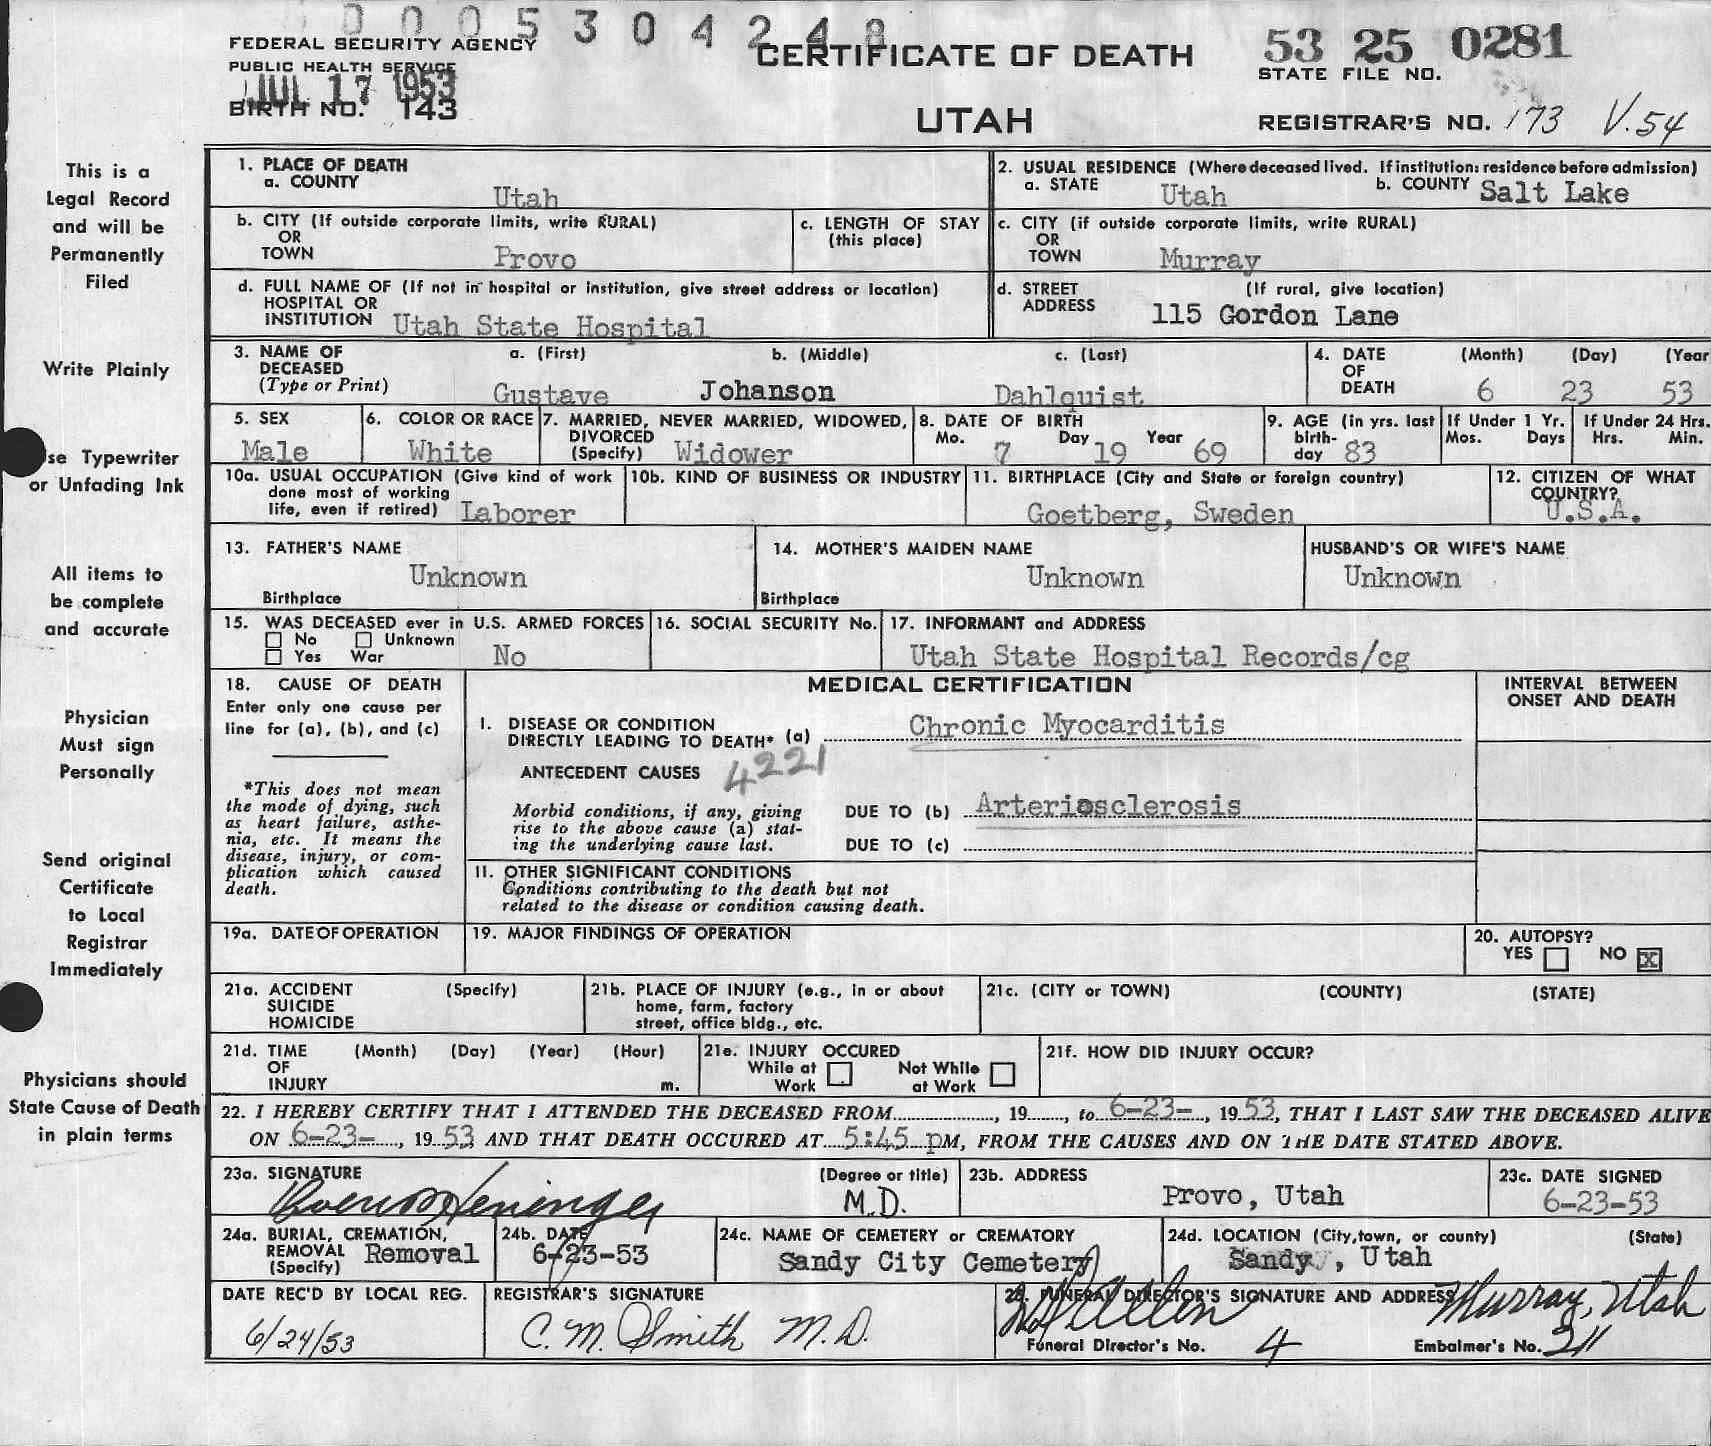 0005304248
FEDERAL SECURITY AGENCY
PUBLIC HEALTH SERVICE
JUL 17 1953
BIRTH NO. 143
CERTIFICATE OF DEATH
UTAH
53 25 0281
STATE FILE NO.
REGISTRAR'S NO. 173 V.54
This is a
Legal Record
and will be
Permanently
Filed
Write Plainly
se Typewriter
or Unfading Ink
All items to
be complete
and accurate
Physician
Must sign
Personally
Send original
Certificate
to Local
Registrar
Immediately
Physicians should
State Cause of Death
in plain terms
1. PLACE OF DEATH
a. COUNTY Utah
2. USUAL RESIDENCE (Where deceased lived. If institution: residence before admission)
a. STATE Utah b. COUNTY Salt Lake
b. CITY (If outside corporate limits, write RURAL)
OR
TOWN Provo
c. LENGTH OF STAY
(this place)
c. CITY (if outside corporate limits, write RURAL)
OR
TOWN Murray
d. FULL NAME OF (If not in hospital or institution, give street address or location)
HOSPITAL OR
INSTITUTION Utah State Hospital
d. STREET (If rural, give location)
ADDRESS 115 Gordon Lane
3. NAME OF DECEASED (Type or Print)
a. (First) b. (Middle) c. (Last)
Gustave Johanson Dahlquist
4. DATE OF DEATH (Month) (Day) (Year
6 23 53
5. SEX
Male
6. COLOR OR RACE
White
7. MARRIED, NEVER MARRIED, WIDOWED,
DIVORCED
(Specify) Widower
8. DATE OF BIRTH
Mo. 7 Day 19 Year 69
9. AGE (in yrs. last
birth-
day 83
If Under 1 Yr.
Mos. Days
If Under 24 Hrs.
Hrs. Min.
10a. USUAL OCCUPATION (Give kind of work
done most of working
life, even if retired) Laborer
10b. KIND OF BUSINESS OR INDUSTRY
11. BIRTHPLACE (City and State or foreign country)
Goetberg, Sweden
12. CITIZEN OF WHAT
COUNTRY?
U.S.A.
13. FATHER'S NAME
Unknown
Birthplace
14. MOTHER'S MAIDEN NAME
Unknown
Birthplace
HUSBAND'S OR WIFE'S NAME
Unknown
15. WAS DECEASED ever in U.S. ARMED FORCES
No Unknown
Yes War No
16. SOCIAL SECURITY No.
17. INFORMANT and ADDRESS
Utah State Hospital Records/cg
18. CAUSE OF DEATH
Enter only one cause per
line for (a), (b), and (c)
*This does not mean
the mode of dying, such
as heart failure, asthe-
nia, etc. It means the
disease, injury, or com-
plication which caused
death.
MEDICAL CERTIFICATION
INTERVAL BETWEEN
ONSET AND DEATH
I. DISEASE OR CONDITION
DIRECTLY LEADING TO DEATH* (a) Chronic Myocarditis
ANTECEDENT CAUSES 4221
Morbid conditions, if any, giving
rise to the above cause (a) stat-
ing the underlying cause last.
DUE TO (b) Arteriosclerosis
DUE TO (c)
11. OTHER SIGNIFICANT CONDITIONS
Conditions contributing to the death but not
related to the disease or condition causing death.
19a. DATE OF OPERATION
19. MAJOR FINDINGS OF OPERATION
20. AUTOPSY?
YES NO X
21a. ACCIDENT (Specify)
SUICIDE
HOMICIDE
21b. PLACE OF INJURY (e.g., in or about
home, farm, factory
street, office bldg., etc.
21c. (CITY or TOWN) (COUNTY) (STATE)
21d. TIME (Month) (Day) (Year) (Hour)
OF
INJURY m.
21e. INJURY OCCURED
While at Work Not While at Work
21f. HOW DID INJURY OCCUR?
22. I HEREBY CERTIFY THAT I ATTENDED THE DECEASED FROM............, 19......, to 6-23-, 1953, THAT I LAST SAW THE DECEASED ALIVE
ON 6-23-, 1953 AND THAT DEATH OCCURED AT 5:45 pM, FROM THE CAUSES AND ON THE DATE STATED ABOVE.
23a. SIGNATURE (Degree or title)
Heninger M.D.
23b. ADDRESS
Provo, Utah
23c. DATE SIGNED
6-23-53
24a. BURIAL, CREMATION,
REMOVAL Removal
(Specify)
24b. DATE
6-23-53
24c. NAME OF CEMETERY or CREMATORY
Sandy City Cemetery
24d. LOCATION (City, town, or county) (State)
Sandy, Utah
DATE REC'D BY LOCAL REG.
6/24/53
REGISTRAR'S SIGNATURE
C. M. Smith M.D.
25. FUNERAL DIRECTOR'S SIGNATURE AND ADDRESS
Allen Murray, Utah
Funeral Director's No. 4
Embalmer's No. 211